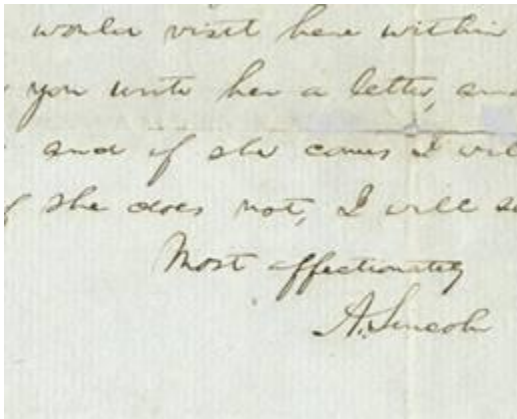 would visit here within
you write her a letter, and
and if she comes I will
if she does not, I will se
Most affectionately
A. Lincoln